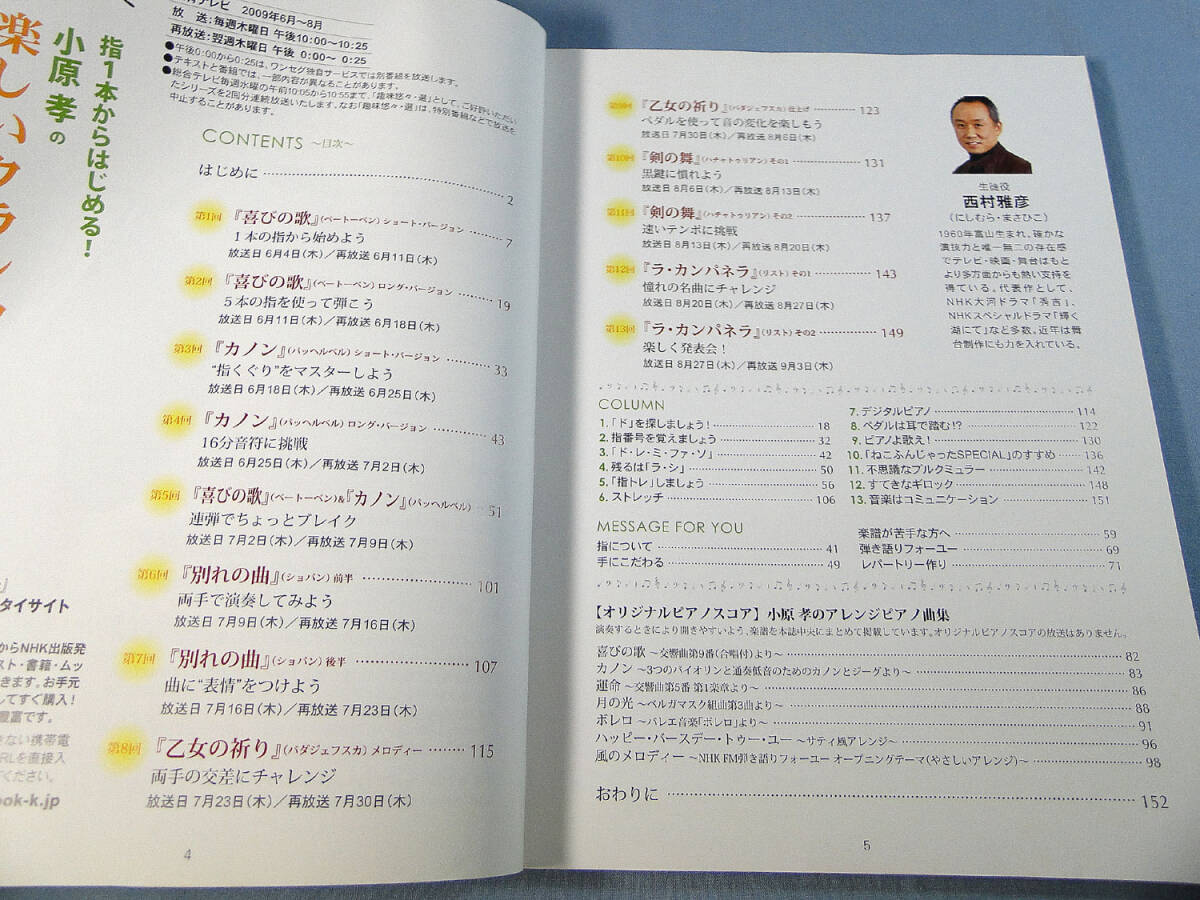 テレビ 2009年6月〜8月
放 送:毎週木曜日 午後10:00〜10:25
再放送:翌週木曜日 午後 0:00〜 0:25
●午後0:00から0:25は、ワンセグ独自サービスでは別番組を放送します。
●テキストと番組では、一部内容が異なることがあります。
●総合テレビ毎週水曜の午前10:05から10:55まで、「趣味悠々・選」として、ご好評いただい
たシリーズを2回分連続放送いたします。なお「趣味悠々・選」は、特別番組などで放送を
中止することがあります。
指1本からはじめる!
小原 孝の
楽しい
タイサイト
からNHK出版発
スト・書籍・ムッ
きます。お手元
してすぐ購入!
豊富です。
ない携帯電
RLを直接入
ください。
ook-k.jp
CONTENTS 〜目次〜
はじめに 2
第1回 『喜びの歌』(ベートーベン) ショート・バージョン 7
1本の指から始めよう
放送日 6月4日(木)/再放送 6月11日(木)
第2回 『喜びの歌』(ベートーベン) ロング・バージョン 19
5本の指を使って弾こう
放送日 6月11日(木)/再放送 6月18日(木)
第3回 『カノン』(パッヘルベル) ショート・バージョン 33
“指くぐり”をマスターしよう
放送日 6月18日(木)/再放送 6月25日(木)
第4回 『カノン』(パッヘルベル) ロング・バージョン 43
16分音符に挑戦
放送日 6月25日(木)/再放送 7月2日(木)
第5回 『喜びの歌』(ベートーベン)&『カノン』(パッヘルベル) 51
連弾でちょっとブレイク
放送日 7月2日(木)/再放送 7月9日(木)
第6回 『別れの曲』(ショパン) 前半 101
両手で演奏してみよう
放送日 7月9日(木)/再放送 7月16日(木)
第7回 『別れの曲』(ショパン) 後半 107
曲に“表情”をつけよう
放送日 7月16日(木)/再放送 7月23日(木)
第8回 『乙女の祈り』(バダジェフスカ) メロディー 115
両手の交差にチャレンジ
放送日 7月23日(木)/再放送 7月30日(木)
4
第9回 『乙女の祈り』(バダジェフスカ) 仕上げ 123
ペダルを使って音の変化を楽しもう
放送日 7月30日(木)/再放送 8月6日(木)
第10回 『剣の舞』(ハチャトゥリアン) その1 131
黒鍵に慣れよう
放送日 8月6日(木)/再放送 8月13日(木)
第11回 『剣の舞』(ハチャトゥリアン) その2 137
速いテンポに挑戦
放送日 8月13日(木)/再放送 8月20日(木)
第12回 『ラ・カンパネラ』(リスト) その1 143
憧れの名曲にチャレンジ
放送日 8月20日(木)/再放送 8月27日(木)
第13回 『ラ・カンパネラ』(リスト) その2 149
楽しく発表会!
放送日 8月27日(木)/再放送 9月3日(木)
生徒役
西村雅彦
(にしむら・まさひこ)
1960年富山生まれ。確かな
演技力と唯一無二の存在感
でテレビ・映画・舞台はもと
より多方面からも熱い支持を
得ている。代表作として、
NHK大河ドラマ「秀吉」、
NHKスペシャルドラマ「輝く
湖にて」など多数。近年は舞
台制作にも力を入れている。
COLUMN
1.「ド」を探しましょう! 18
2.指番号を覚えましょう 32
3.「ド・レ・ミ・ファ・ソ」 42
4.残るは「ラ・シ」 50
5.「指トレ」しましょう 56
6.ストレッチ 106
7.デジタルピアノ 114
8.ペダルは耳で踏む!? 122
9.ピアノよ歌え! 130
10.「ねこふんじゃったSPECIAL」のすすめ 136
11.不思議なブルクミュラー 142
12.すてきなギロック 148
13.音楽はコミュニケーション 151
MESSAGE FOR YOU
指について 41
手にこだわる 49
楽譜が苦手な方へ 59
弾き語りフォーユー 69
レパートリー作り 71
【オリジナルピアノスコア】 小原 孝のアレンジピアノ曲集
演奏するときにより開きやすいよう、楽譜を本誌中央にまとめて掲載しています。オリジナルピアノスコアの放送はありません。
喜びの歌 〜交響曲第9番(合唱付)より〜 82
カノン 〜3つのバイオリンと通奏低音のためのカノンとジーグより〜 83
運命 〜交響曲第5番 第1楽章より〜 86
月の光 〜ベルガマスク組曲第3曲より〜 88
ボレロ 〜バレエ音楽「ボレロ」より〜 91
ハッピー・バースデー・トゥー・ユー 〜サティ風アレンジ〜 96
風のメロディー 〜NHK FM弾き語りフォーユー オープニングテーマ(やさしいアレンジ)〜 98
おわりに 152
5